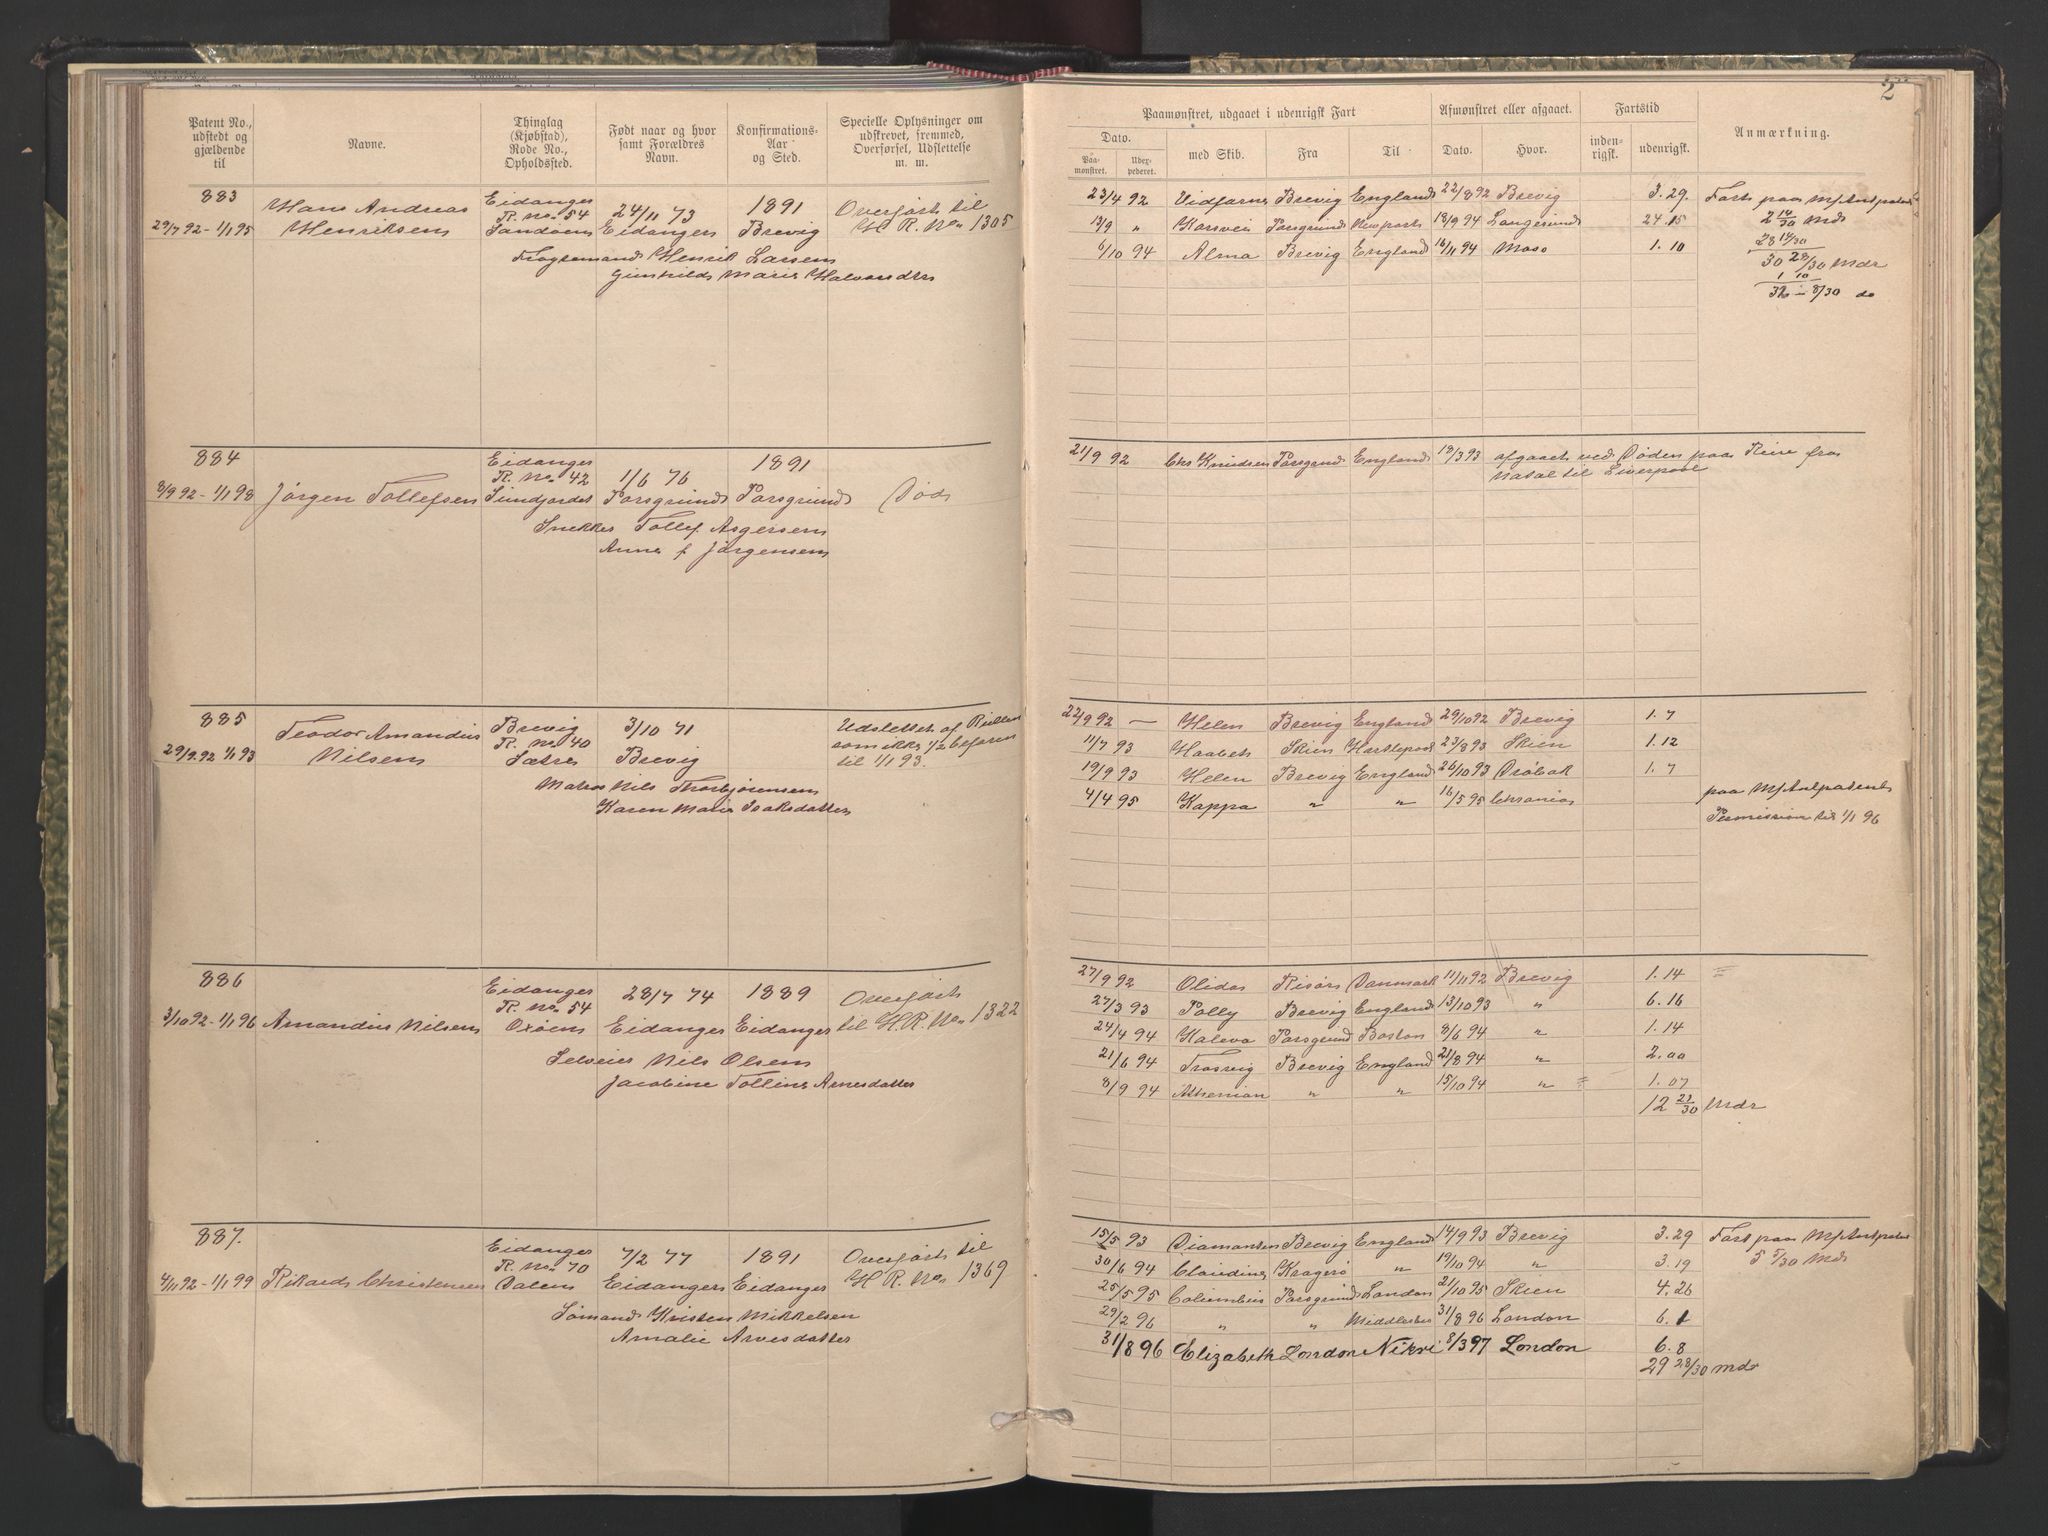 2
Patent No., udstedt og gjældende til
Navne.
Thinglag (Kjøbstad), Rode No., Opholdssted.
Født naar og hvor samt Forældres Navn.
Konfirmations-Aar og Sted.
Specielle Oplysninger om udskrevet, fremmed, Overførsel, Udslettelse m. m.
Paamønstret, udgaaet i udenrigsk Fart
Afmønstret eller afgaaet.
Fartstid
Anmærkning.
Dato.
Paamønstret.
Udexpederet.
med Skib.
Fra
Til
Dato.
Hvor.
indenrigsk.
udenrigsk.
883
29/7 92 - 1/1 95
Hans Andreas
Henriksen
Eidanger
R. No. 54
Sandøen
24/11 73
Eidanger
1891
Brevig
Overført til
H. R. No. 1305
Henrik Larsen
Marie Halvorsdtr
23/4 92 Vidfarne Brevig England 22/8 92 Brevig 3. 29.
13/9 " Korsvei Porsgrund Newport 18/9 94 Langesund 24 15
6/10 94 Alma Brevig England 16/11 94 Moss 1. 10
2 14/30 Mdr
28 14/30
30 28/30 Mdr
1 10
32 - 8/30 do
884
8/9 92 - 1/1 98
Jørgen Tollefsen
Eidanger
R. No. 42
Sundjordet
1/6 76
Porsgrund
1891
Porsgrund
Død
Snekker Tollef Asgersen
Anne f Jørgensen
21/9 92 Chr Knudsen Porsgrund England 18/3 93 afgaaet ved Døden paa Reise fra
Natal til Liverpool
885
29/9 92 1/1 93
Teodor Amandus
Nilsen
Brevig
R. No. 40
Sætre
3/10 71
Brevig
Udslettet af Rullen
som ikke 1/2 befaren
til 1/1 93.
Matros Nils Thorbjørnsen
Karen Marie Isaksdatter
22/9 92 — Helen Brevig England 29/10 92 Brevig 1. 7
11/7 93 Haabet Skien Hartlepool 23/8 93 Skien 1. 12
19/9 93 Helen Brevig England 26/10 93 Drøbak 1. 7
4/4 95 Kappa " " 16/5 95 Chrania
Permission til 1/1 96
886
3/10 92 - 1/1 96
Amandus Nilsen
Eidanger
R. No. 54
Oxøen
28/7 74
Eidanger
1889
Eidanger
Overført
til H. R. No. 1322
Selveier Nils Olsen
Jacobine Tolline Arnesdatter
27/9 92 Olidas Risør Danmark 11/11 92 Brevig 1. 14
27/3 93 Polly Brevig England 13/10 93 " 6. 16
24/4 94 Kaleva Porsgrund Boston 8/6 94 " 1. 14
21/6 94 Trosvig Brevig England 21/8 94 " 2. 00
8/9 94 Athenian " " 15/10 94 " 1. 07
12 21/30 Mdr
887.
4/11 92 - 1/1 99
Rikard Christensen
Eidanger
R. No. 70
Dalen
7/2 77
Eidanger
1891
Eidanger
Overført til
H. R. No. 1369
Sømand Kristen Mikkelsen
Amalie Arvesdatter
15/5 93 Diamanten Brevig England 14/9 93 Brevig 3. 29
30/6 94 Claudine Kragerø " 19/10 94 " 3. 19
5 5/30 Mdr
25/5 95 Columbus Porsgrund London 21/10 95 Skien 4. 26
29/2 96 " " Middlesbro 31/8 96 London 6. 1
31/8 96 Elizabeth London 8/3 97 London 6. 8
29 28/30 mdr